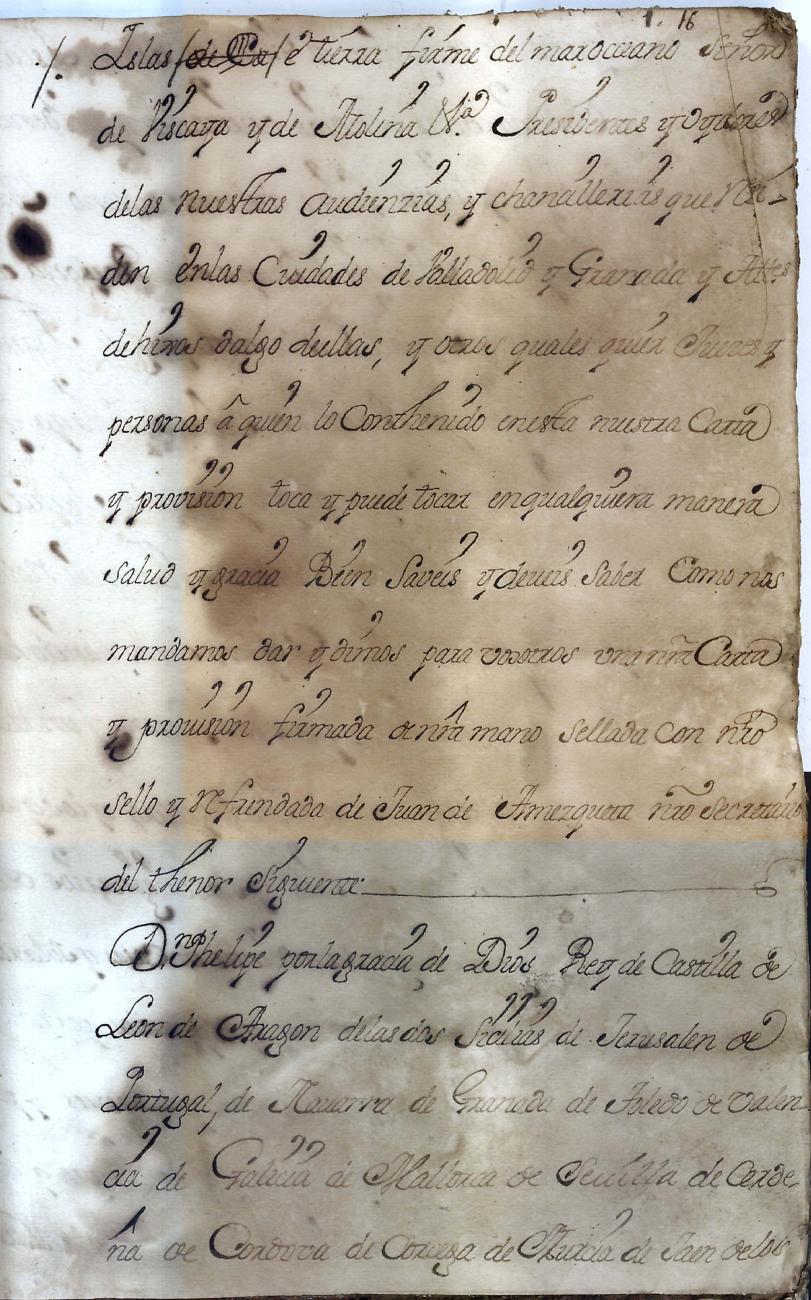 16
Islas (de Ca) e tierra firme del mar occeano Señor
de Viscaya y de Molina &.a Presidentes y oydores
delas nuestras audienzias, y chanzillerias que Rei-
den enlas Ciudades de Valladolid y Granada y Alldes
dehixos dalgo deellas, y otros quales quier Jueces y
personas â quien lo Conthenido enesta nuestra Carta
y provision toca y puede tocar enqualquiera manera
Salud y gracia Bien Saveis y deveis Saber Como nos
mandamos dar y dimos para vosotros una nrã Carta
y provision firmada de nrã mano Sellada Con nrõ
sello y Refrendada de Juan de Amezqueta nrõ Secretario
del thenor Siguiente
Dn Phelipe por la gracia de Dios Rey de Castilla de
Leon de Aragon delas dos Sicilias de Jerusalen de
Portugal, de Navarra de Granada de Toledo de Valen
cia de Galicia de Mallorca de Sevilla de Cerde-
ña de Cordova de Corcega de Murcia de Jaen delos